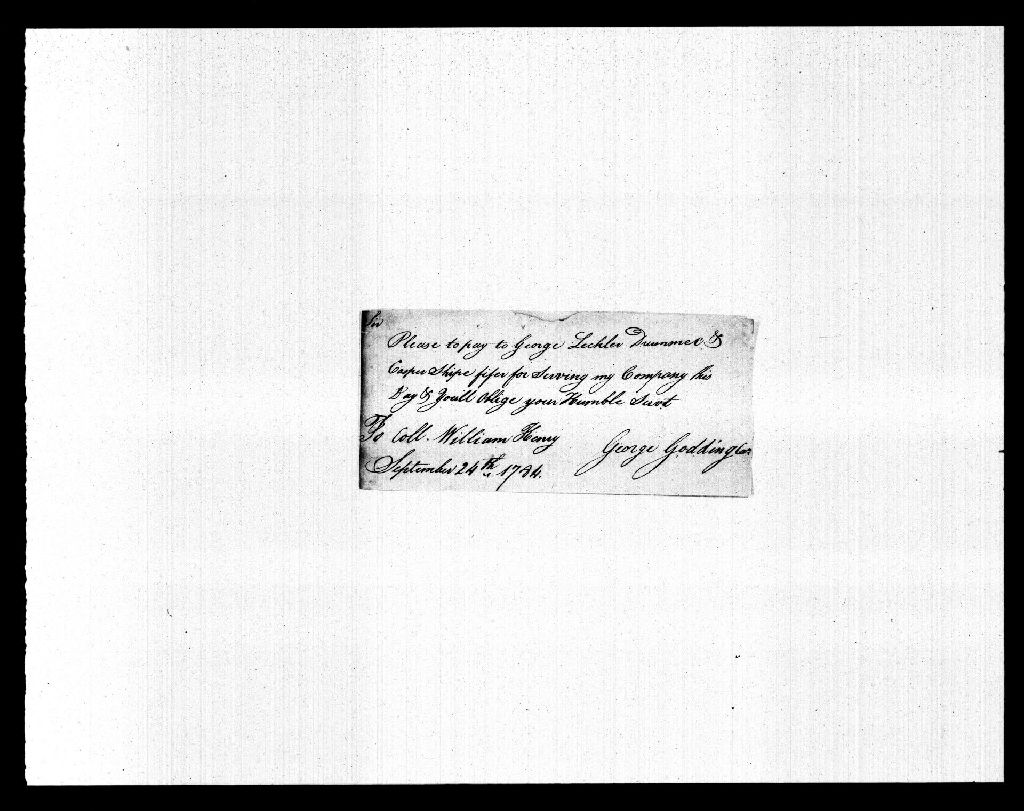 Sir
Please to pay to George Lechler Drummer &
Casper Shipe fifer for Serving my Company this
Day & Youill Oblige your Humble Servt
To Coll. William Henry George Godding
September 24th 1784.